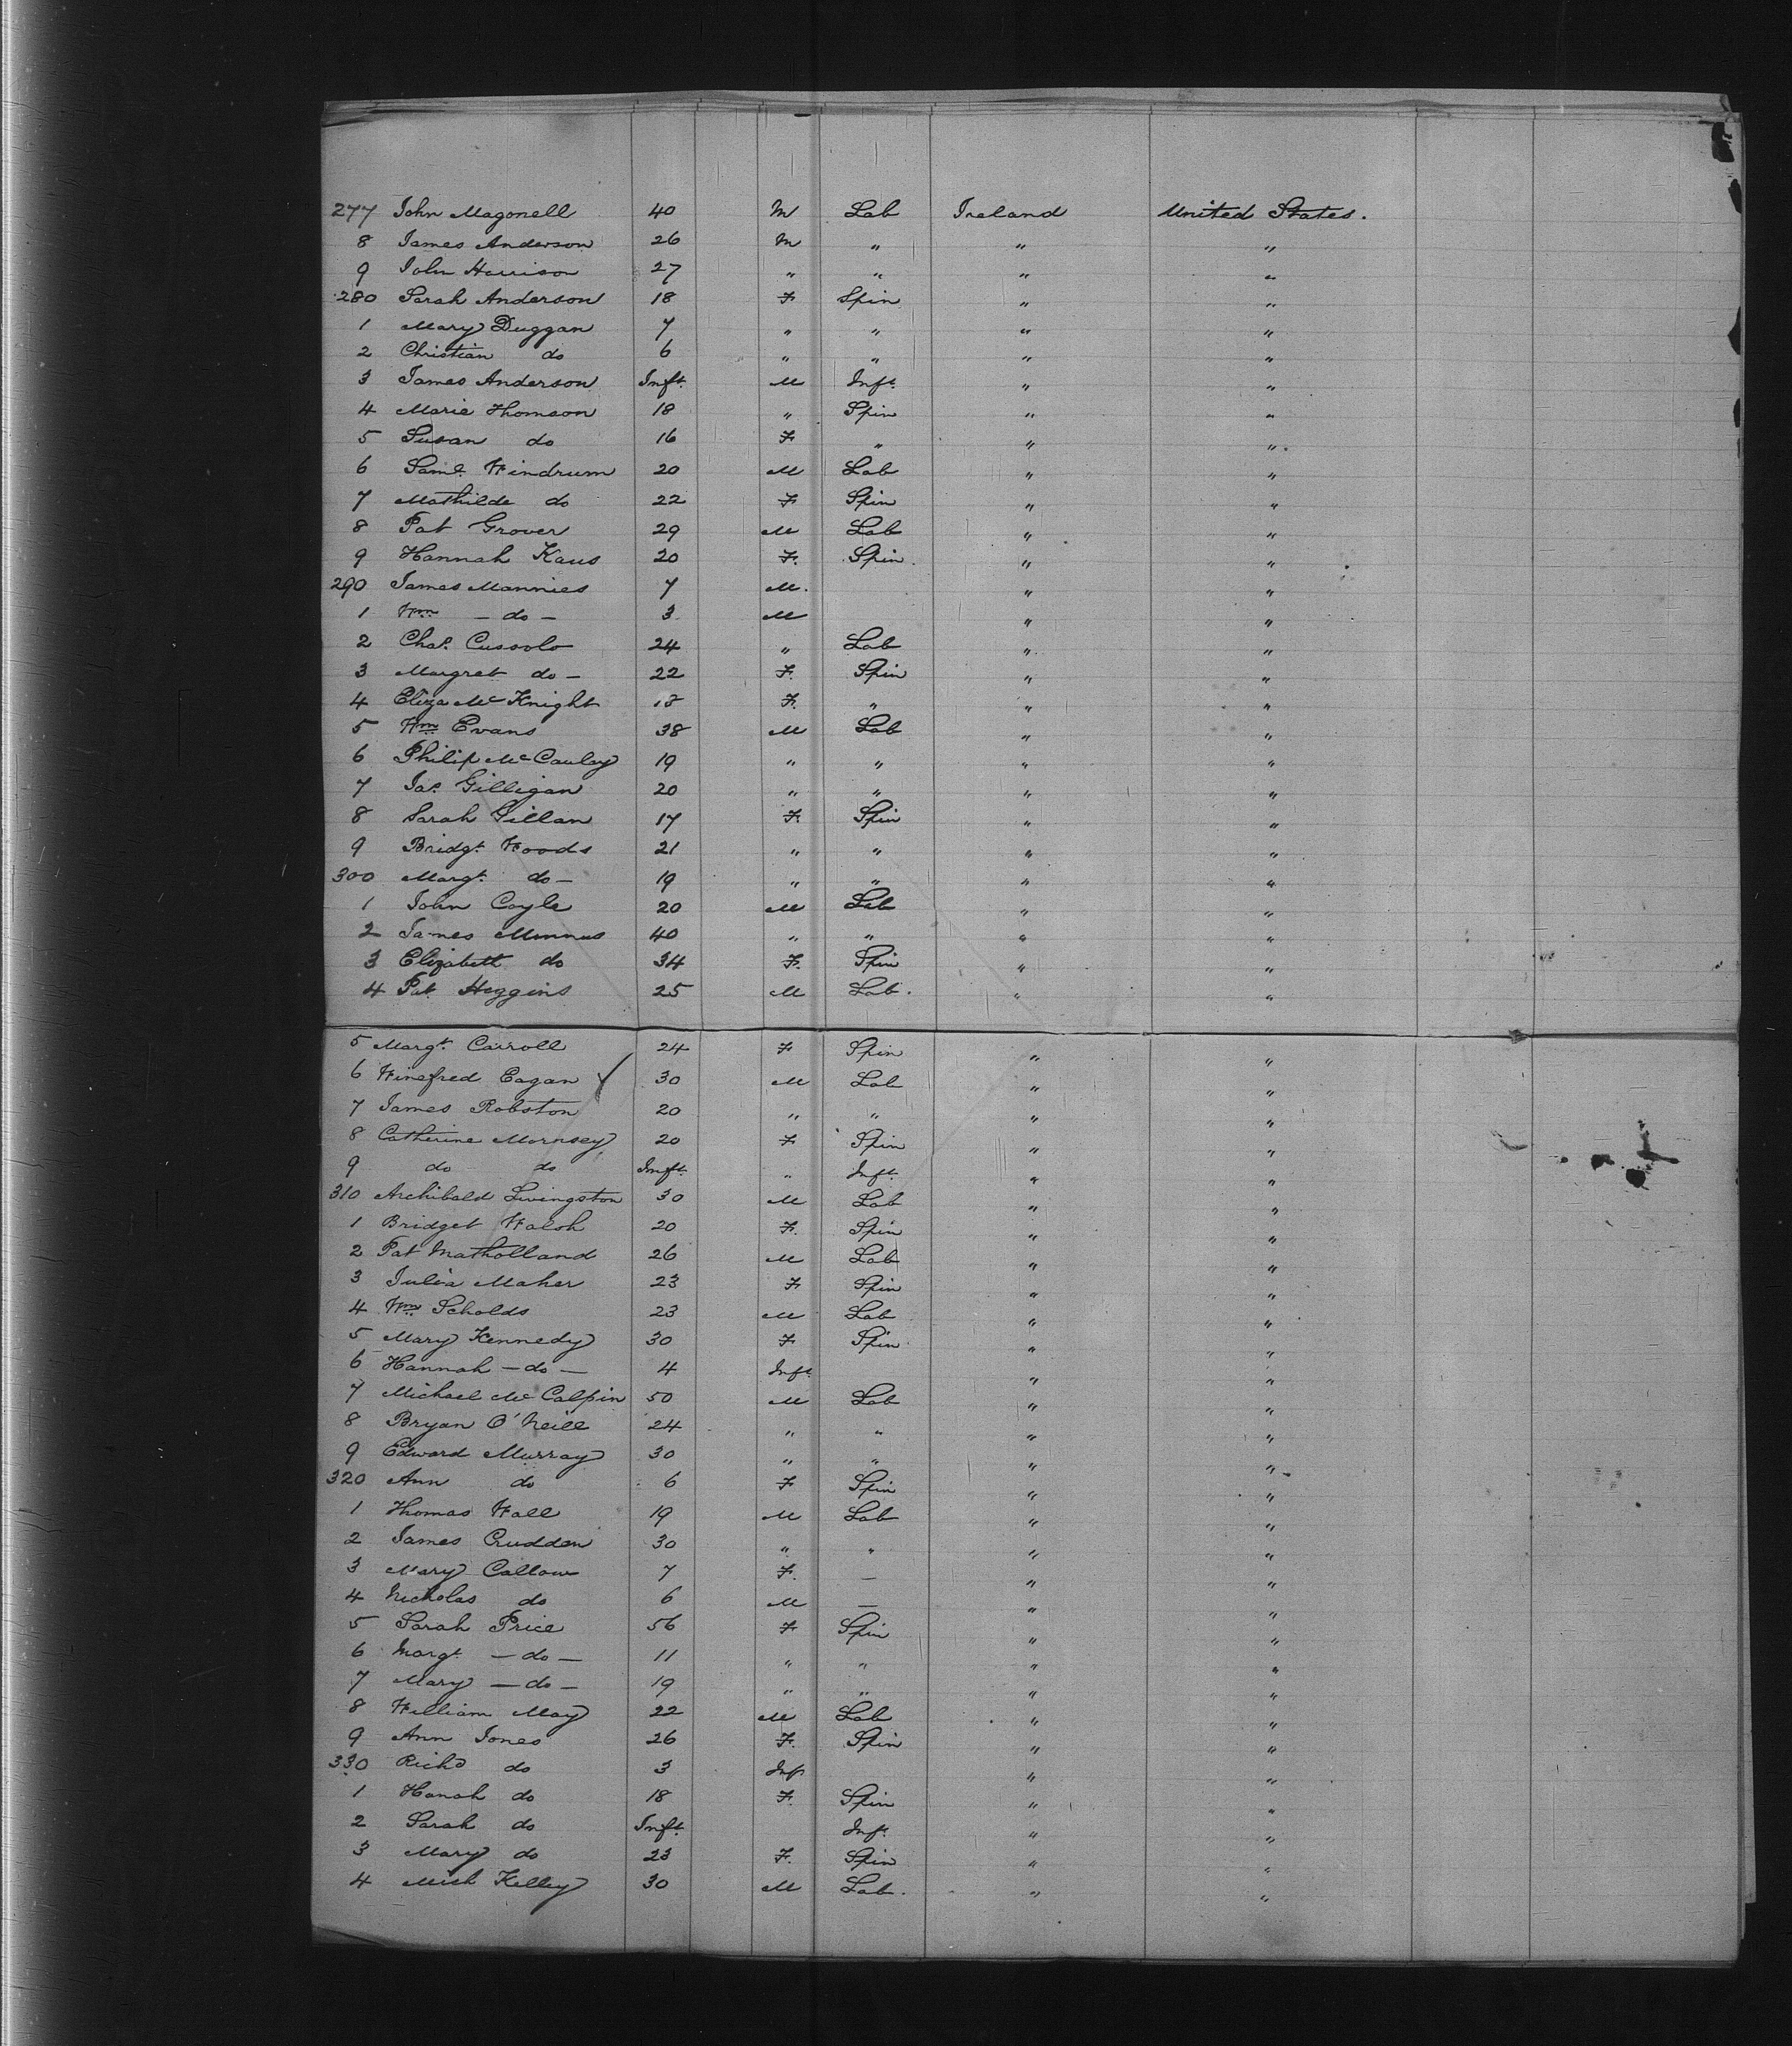 277 John Magonell 40 M Lab Ireland United States.
8 James Anderson 26 M " " "
9 John Harrison 27 " " " "
280 Sarah Anderson 18 F Spin " "
1 Mary Duggan 7 " " " "
2 Christian do 6 " " " "
3 James Anderson Inft. M Inft. " "
4 Marie Thomson 18 " Spin " "
5 Susan do 16 F " " "
6 Saml. Windrum 20 M Lab " "
7 Mathilde do 22 F Spin " "
8 Pat Grover 29 M Lab " "
9 Hannah Kaus 20 F. Spin. " "
290 James Mannies 7 M. " "
1 Wm — do — 3 M " "
2 Chas. Cussolo 24 " Lab " "
3 Margret do — 22 F. Spin " "
4 Eliza McKnight 18 F. " " "
5 Wm Evans 38 M Lab " "
6 Philip McCauley 19 " " " "
7 Jas. Gilligan 20 " " " "
8 Sarah Gillan 17 F. Spin " "
9 Bridgt. Woods 21 " " " "
300 Margt. do — 19 " " " "
1 John Coyle 20 M Lab " "
2 James Minnus 40 " " " "
3 Elizabeth do 34 F. Spin " "
4 Pat. Heggins 25 M Lab. " "
5 Margt. Carroll 24 F Spin " "
6 Winefred Eagan 30 M Lab " "
7 James Robston 20 " " " "
8 Catherine Mornsey 20 F Spin " "
9 do do Inft. " Inft. " "
310 Archibald Livingston 30 M Lab " "
1 Bridget Walsh 20 F. Spin " "
2 Pat Matholland 26 M Lab " "
3 Julia Maher 23 F Spin " "
4 Wm Scholds 23 M Lab " "
5 Mary Kennedy 30 F Spin " "
6 Hannah — do — 4 Inft. " "
7 Michael McCalpin 50 M Lab " "
8 Bryan O'Neill 24 " " " "
9 Edward Murray 30 " " " "
320 Ann do 6 F Spin " "
1 Thomas Wall 19 M Lab " "
2 James Crudden 30 " " " "
3 Mary Callow 7 F. — " "
4 Nicholas do 6 M — " "
5 Sarah Price 56 F Spin " "
6 Margt. — do — 11 " " " "
7 Mary — do — 19 " " " "
8 William May 22 M Lab " "
9 Ann Jones 26 F. Spin " "
330 Richd do 3 Inf " "
1 Hanah do 18 F. Spin " "
2 Sarah do Inft. Inft. " "
3 Mary do 23 F. Spin " "
4 Mich Kelley 30 M Lab. " "